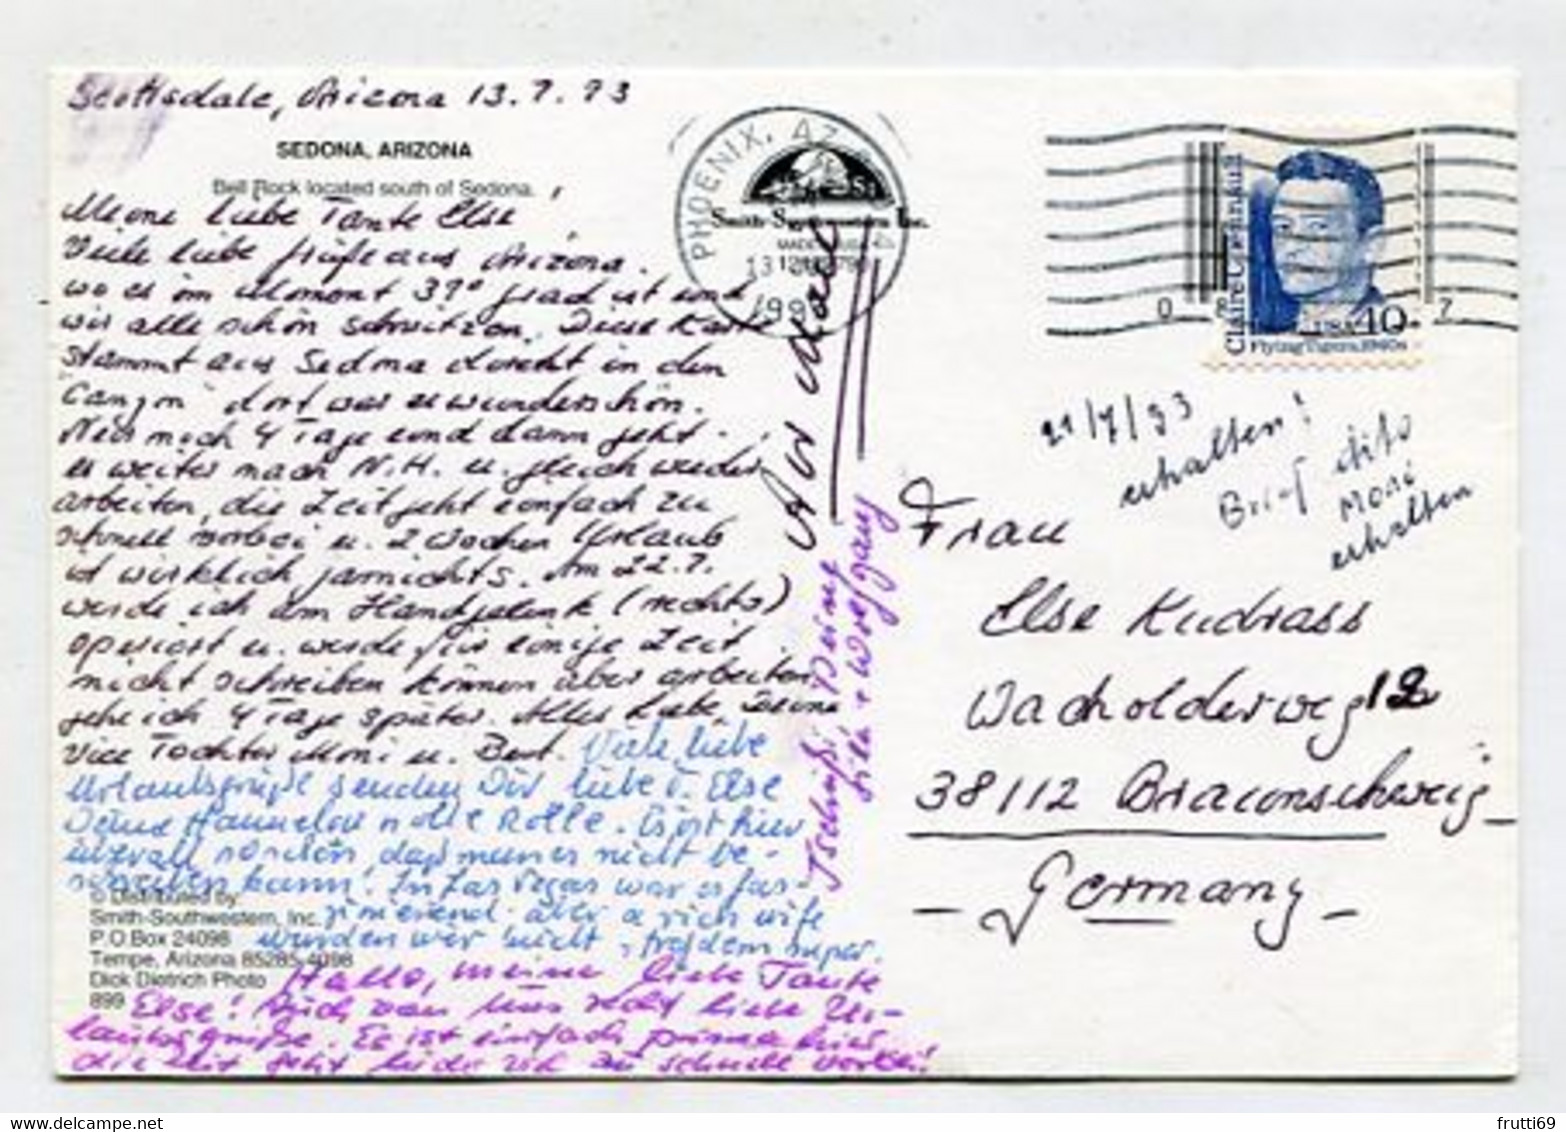 Scottsdale, Arizona 13.7.93
SEDONA, ARIZONA
Bell Rock located south of Sedona.
Meine liebe Tante Else!
Viele liebe Grüße aus Arizona.
wo es im Moment 39° grad ist und
wir alle schön schwitzen. Diese Karte
stammt aus Sedona direkt in den
Canyon dort war es wunderschön.
Nur noch 4 Tage und dann geht
es weiter nach N.H. u. gleich wieder
arbeiten, die Zeit geht einfach zu
schnell vorbei u. 2 Wochen Urlaub
ist wirklich garnichts. Am 22.7.
werde ich am Handgelenk (rechts)
operiert u. werde für einige Zeit
nicht schreiben können aber arbeiten
gehe ich 4 Tage später. Alles Liebe, Deine
Vice Tochter Moni u. Bert. Viele liebe
Urlaubsgrüße senden Dir liebe T. Else
Deine Hannelore + die Rolle. Es ist hier
überall so schön, daß man es nicht be-
schreiben kann! In Las Vegas war es fas-
zinierend aber
wurden wir nicht, trotzdem super.
Hallo, meine liebe Tante
Else! Auch von uns recht liebe Ur-
laubsgrüße. Es ist einfach prima hier
die Zeit geht leider viel zu schnell vorbei!
Tschüßi Deine
+ Wolfgang
© Distributed by:
Smith-Southwestern, Inc.
P.O. Box 24098
Tempe, Arizona 85285-4098
Dick Dietrich Photo
899
PHOENIX, AZ
Smith-Southwestern Inc.
MADE IN USA
13
199
Air Mail
Claire Chennault
USA 10
Flying Tigers, 1940s
0 8 7
21/7/93
erhalten!
Brief dito
Moni
erhalten
Frau
Else Kudrass
Wacholderweg 12
38112 Braunschweig
- Germany -
frutti69